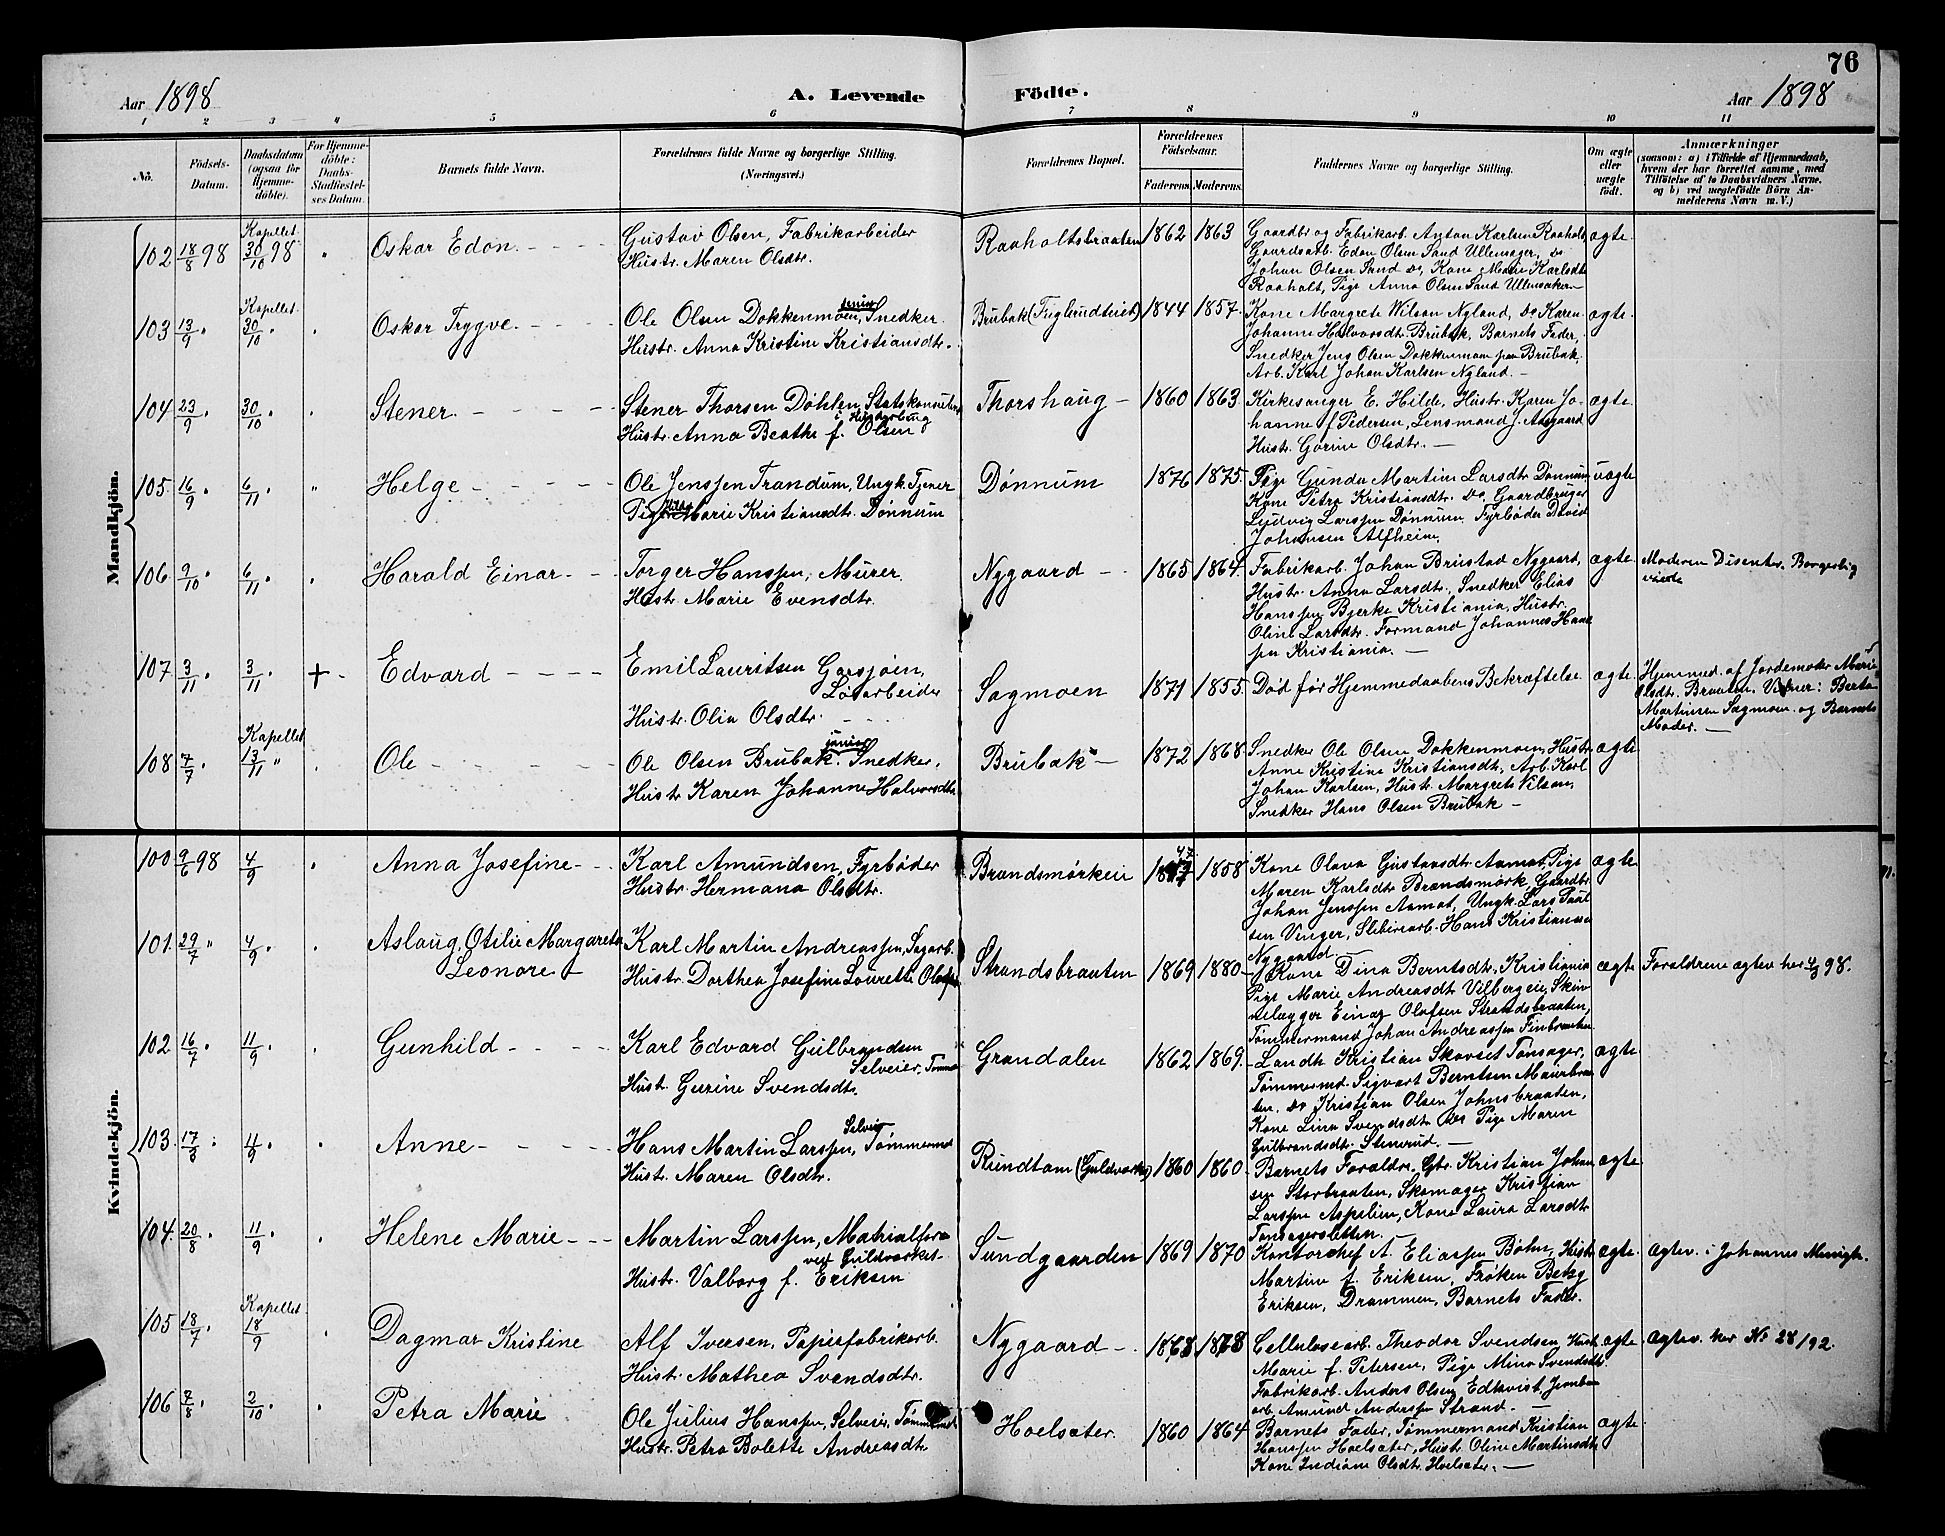 76
Aar 1898
A. Levende
Födte.
Aar 1898
1 2 3 4 5 6 7 8 9 10 11
No.
Födsels-Datum.
Daabsdatum (ogsaa för Hjemme-döbte).
For Hjemme-döbte: Daabs-Stadfæstel-ses Datum.
Barnets fulde Navn.
Forældrenes fulde Navne og borgerlige Stilling.
(Næringsvei.)
Forældrenes Bopæl.
Forældrenes Födselsaar.
Faderens. Moderens.
Faddernes Navne og borgerlige Stilling.
Om ægte eller uægte födt.
Anmærkninger
(saasom: a) i Tilfælde af Hjemmedaab,
hvem der har forrettet samme, med
Tilföielse af to Daabsvidners Navne,
og b) ved uægtefödte Börn An-
melderens Navn m. V.)
Mandkjön.
102 18/8 98 Kapellet 30/10 98 " Oskar Edon
Gustav Olsen, Fabrikarbeider
Hustr. Maren Olsdtr.
Raaholtsbraaten 1862 1863
Gaardbr og Fabrikarb. Anton Karlsen Raaholt,
Gaardsarb. Edon Olsen Sand Ullensager, Do
Johan Olsen Sand Do, Kone Marie Karlsdtr
Raaholt, Pige Anna Olsen Sand Ullensaker
ægte.
103 13/9 " Kapellet 30/10 " Oskar Trygve.
Ole Olsen Dokkenmoen, senior Snedker.
Hustr. Anna Kristine Kristiansdtr.
Brubak (Tiglerudteiet) 1844 1857.
Kone Margrete Wilson Nyland, Do Karen
Johanne Halvorsdtr. Brubak, Barnets Fader,
Snedker Jens Olsen Dokkenmoen paa Brubak,
Arb. Karl Johan Karlsen Nyland. –
ægte.
104 23/9 " 30/10 " Stener.
Stener Thorsen Döhlen, Statskonsulent
Hustr. Anna Beathe f. Olsen
Thorshaug – 1860 1863
Kirkesanger E. Hilde, Hustr. Karen Jo-
hanne f. Pedersen, Lensmand J. Aasgaard
Hustr. Gorine Olsdtr. –
ægte
105. 16/9 " 6/11 " Helge
Ole Jenssen Trandum, Ungk. Tjener
Pige Hilda Marie Kristiansdtr. Dønnum
Dønnum 1876 1875.
Pige Gunda Martine Larsdtr Dønnum
Kone Petra Kristiansdtr. Do, Gaardbruger
Ludvig Larssen Dønnum. Fyrbøder David
Johansen Alfheim.
uægte
106. 9/10 " 6/11 " Harald Einar
Torger Hanssen, Murer.
Hustr. Marie Evensdtr.
Nygaard – 1865 1864
Fabrikarb. Johan Brustad Nygaard,
Hustr. Anna Larsdtr. Snedker Elias
Hanssen Bjerke Kristiania, Hustr.
Oline Larsdtr. Formand Johannes Hans
sen Kristiania. –
ægte
Moderen Disenter. Borgerlig
viede
107. 3/11 3/11 + Edvard
Emil Lauritsen Garsjøen,
Løsarbeider
Hustr. Olia Olsdtr.
Sagmoen 1871 1855.
Død før Hjemmedaabens Bekræftelse
ægte.
Hjemmed. af Jordemoder Marie
Olsdtr. Braaten. Vidner: Berta
Martinsen Sagmoen og Barnets
Moder. –
108. 7/7 " Kapellet 13/11 " Ole
Ole Olsen Brubak, junior Snedker.
Hustr Karen Johanne Halvorsdtr
Brubak – 1872 1868
Snedker Ole Olsen Dokkenmoen, Hustr
Anne Kristine Kristiansdtr, Arb. Karl
Johan Karlsen, Hustr. Margrete Vilsen,
Snedker Hans Olsen Brubak –
ægte
Kvindekjön.
100 9/6 98 4/9 " Anna Josefine
Karl Amundsen, Fyrbøder
Hustr. Hermana Olsdtr.
Brandsmørkeie 1847 1858
Kone Olava Gustavsdtr. Aamot, Pige
Maren Karlsdtr Brandsmørk, Gaardbr
Johan Jenssen Aamot, Ungk. Lars Paul
sen Venger, Sliberiarb. Hans Kristiansen
Nygaard
ægte
101. 29/7 " 4/9 " Aslaug, Otilie Margarete
Leonore
Karl Martin Andreassen, Sagarb.
Hustr. Dorthea Josefine Lourette Olafsen
Strandsbraaten 1869 1880
Kone Dina Berntsdtr. Kristiania
Pige Marie Andreasdtr Vilbergeie, Skin
nelægger Einar Olafsen Strandsbraaten,
Tømmermand Johan Andreassen Finbraaten
ægte
Forældrene ægtev her 98.
102 16/7 " 11/9 " Gunhild
Karl Edvard Gulbrandsen
Selveier, Tømm
Hust. Gurine Svendsdtr.
Grandalen 1862 1869.
Landh. Kristian Skovset Tønsager,
Tømmermd. Sigvart Berntsen Maurbraa
ten. Do Kristian Olsen Johnsbraaten,
Kone Lina Svendsdtr Do Pige Maren
Gulbrandsdtr. Stenerud. –
ægte
103. 17/8 " 4/9 " Anne
Hans Martin Larssen, Selveier Tømmermd
Hustr. Maren Olsdtr.
Rundtom (Guldverket) 1860 1860
Barnets Forældre, Gbr. Kristian Johan
sen Storbraaten, Skomager Kristian
Larssen Aspelien, Kone Laura Larsdtr
Tønsagersletten.
ægte
104. 20/8 " 11/9 " Helene Marie
Martin Larssen, Matrialforv
ved Guldverket
Hustr. Valborg f. Eriksen
Sundgaarden 1869 1870
Kontorchef A. Eliassen Bøhn, Hustr
Martine f. Eriksen, Frøken Betzy
Eriksen, Drammen, Barnets Fader.
ægte.
Ægtev. i Johannes Menigh.
105 18/7 " Kapellet 18/9 " Dagmar Kristine
Alf Iversen, Papirfabrikarb.
Hustr. Mathea Svendsdtr.
Nygaard – 1868 1868
Cellulosearb. Theodor Svendsen, Hustr
Marie f. Petersen, Pige Mina Svendsdtr
Fabrikarb. Anders Olsen Edkvist, Jernban
arb. Amund Anderssen Strand. –
ægte
Ægtev. her No 28/92.
106 7/8 " 2/10 " Petra Marie
Ole Julius Hanssen, Selveier, Tømmermd.
Hustr. Petra Bolette Andreasdtr
Hoelsæter. 1860 1864
Barnets Fader, Tømmermand Kristian
Hanssen Hoelsæter, Hustr Oline Martinsdtr
Kone Indiane Olsdtr. Hoelsæter. –
ægte